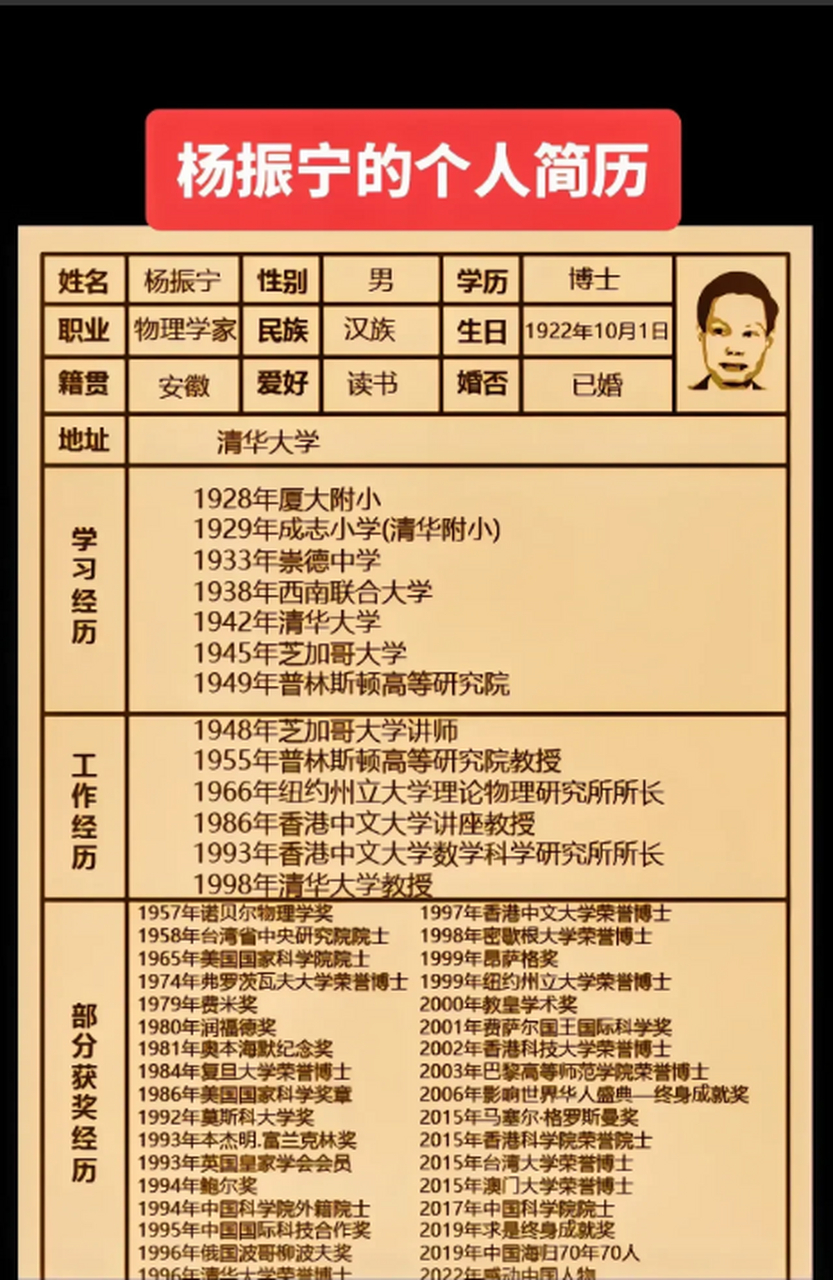 杨振宁的个人简历
姓名 杨振宁 性别 男 学历 博士
职业 物理学家 民族 汉族 生日 1922年10月1日
籍贯 安徽 爱好 读书 婚否 已婚
地址 清华大学
学习经历
1928年厦大附小
1929年成志小学(清华附小)
1933年崇德中学
1938年西南联合大学
1942年清华大学
1945年芝加哥大学
1949年普林斯顿高等研究院
工作经历
1948年芝加哥大学讲师
1955年普林斯顿高等研究院教授
1966年纽约州立大学理论物理研究所所长
1986年香港中文大学讲座教授
1993年香港中文大学数学科学研究所所长
1998年清华大学教授
部分获奖经历
1957年诺贝尔物理学奖
1958年台湾省中央研究院院士
1965年美国国家科学院院士
1974年弗罗茨瓦夫大学荣誉博士
1979年费米奖
1980年润福德奖
1981年奥本海默纪念奖
1984年复旦大学荣誉博士
1986年美国国家科学奖章
1992年莫斯科大学奖
1993年本杰明.富兰克林奖
1993年英国皇家学会会员
1994年鲍尔奖
1994年中国科学院外籍院士
1995年中国国际科技合作奖
1996年俄国波哥柳波夫奖
1996年清华大学荣誉博士
1997年香港中文大学荣誉博士
1998年密歇根大学荣誉博士
1999年昂萨格奖
1999年纽约州立大学荣誉博士
2000年教皇学术奖
2001年费萨尔国王国际科学奖
2002年香港科技大学荣誉博士
2003年巴黎高等师范学院荣誉博士
2006年影响世界华人盛典—终身成就奖
2015年马塞尔·格罗斯曼奖
2015年香港科学院荣誉院士
2015年台湾大学荣誉博士
2015年澳门大学荣誉博士
2017年中国科学院院士
2019年求是终身成就奖
2019年中国海归70年70人
2022年感动中国人物